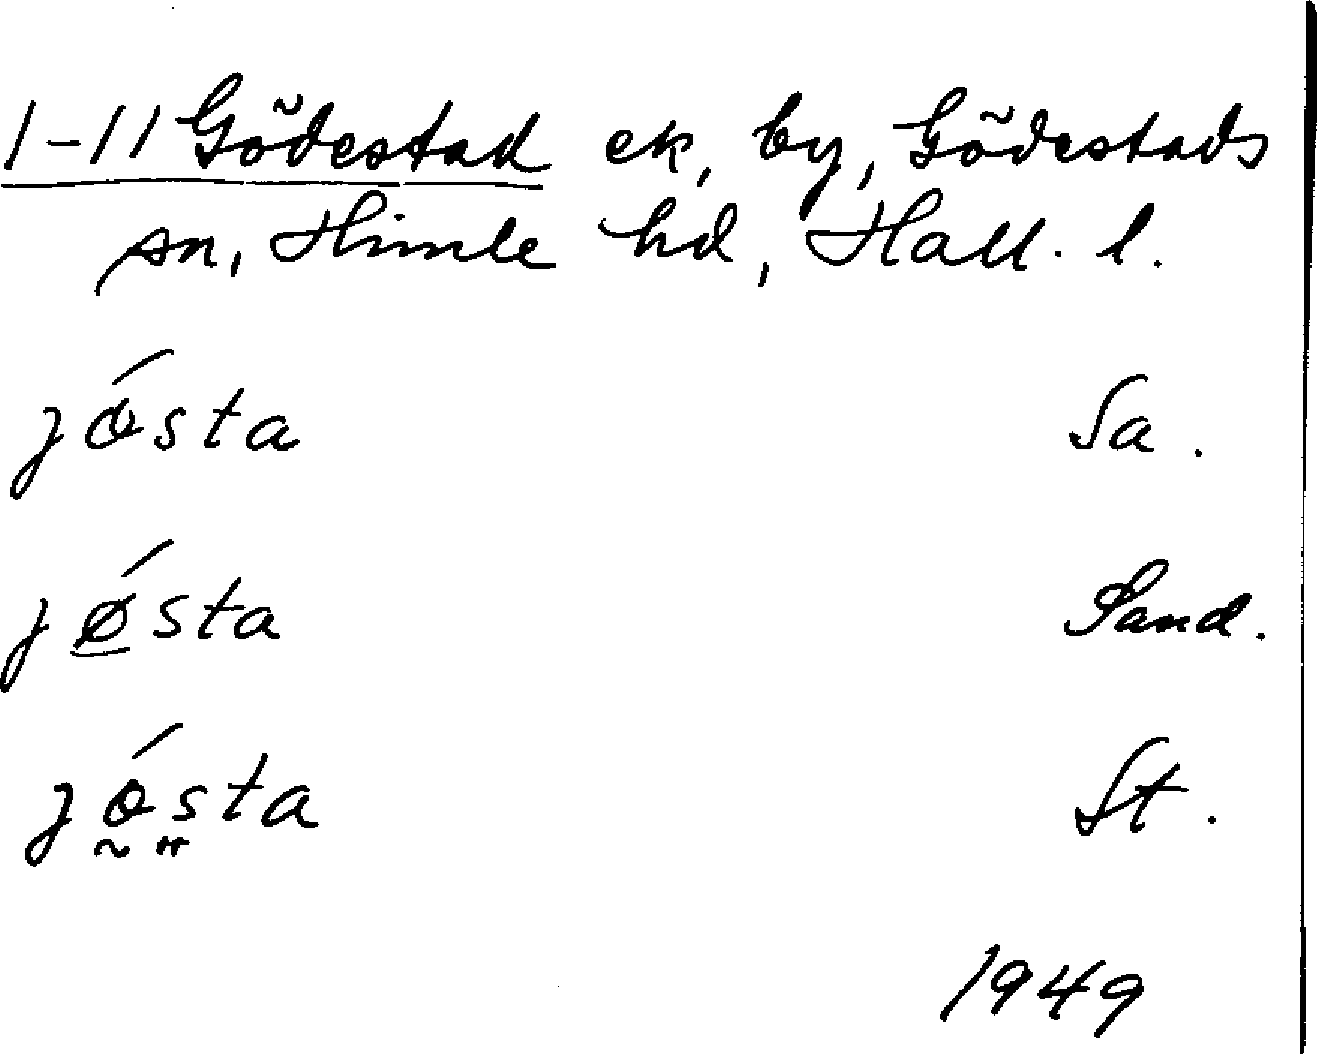 1-11 Gödestad ek, by, Gödestads
sn, Himle hd, Hall. l.
jǿsta Sa.
jǿsta Sand.
jǿsta St.
1949